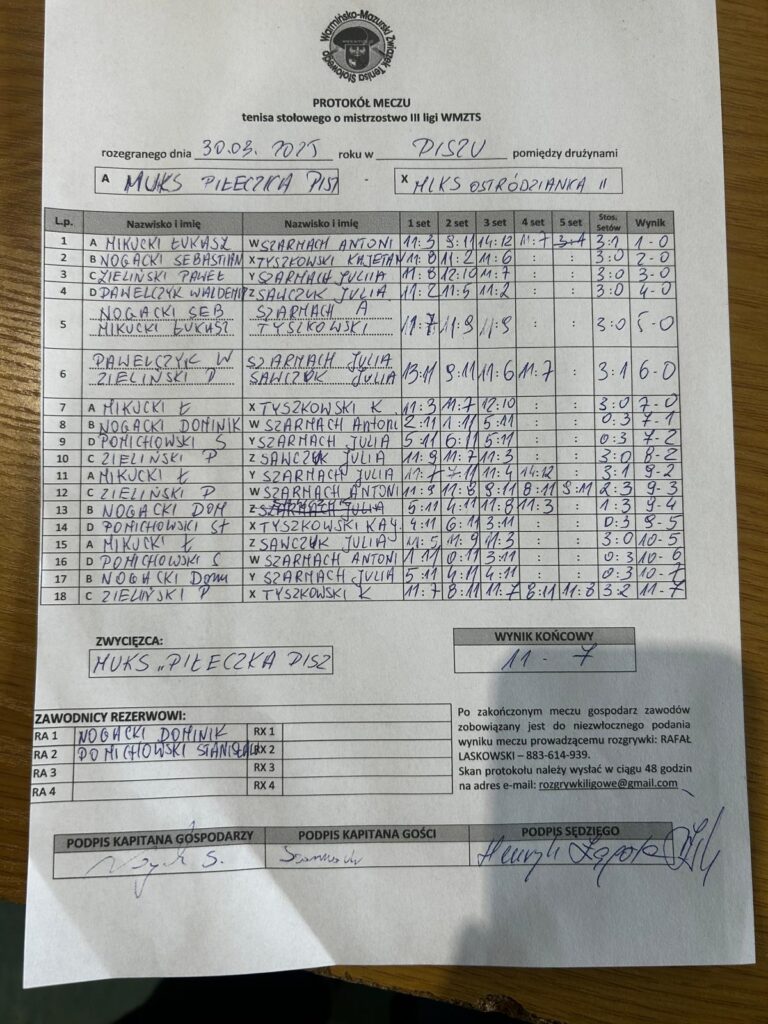 Warmińsko-Mazurski Związek Tenisa Stołowego
PROTOKÓŁ MECZU
tenisa stołowego o mistrzostwo III ligi WMZTS
rozegranego dnia 30.03. 2025 roku w PISZU pomiędzy drużynami
A MUKS PIŁECZKA PISZ - X MLKS OSTRÓDZIANKA II
L.p. Nazwisko i imię Nazwisko i imię 1 set 2 set 3 set 4 set 5 set Stos. Setów Wynik
1 A MIKUCKI ŁUKASZ W SZARMACH ANTONI 11:3 9:11 14:12 11:7 : 3:1 1-0
2 B NOGACKI SEBASTIAN X TYSZKOWSKI KAJETAN 11:8 11:2 11:6 : : 3:0 2-0
3 C ZIELIŃSKI PAWEŁ Y SZARMACH JULIA 11:8 12:10 11:7 : : 3:0 3-0
4 D PAWELCZYK WALDEMAR Z SAWCZUK JULIA 11:2 11:5 11:2 : : 3:0 4-0
5 NOGACKI SEB SZARMACH A
MIKUCKI ŁUKASZ TYSZKOWSKI 11:7 11:9 11:9 : : 3:0 5-0
6 PAWELCZYK W SZARMACH JULIA
ZIELIŃSKI P SAWCZUK JULIA 13:11 9:11 11:6 11:7 : 3:1 6-0
7 A MIKUCKI Ł X TYSZKOWSKI K 11:3 11:7 12:10 : : 3:0 7-0
8 B NOGACKI DOMINIK W SZARMACH Antoni 2:11 1:11 5:11 : : 0:3 7-1
9 D POMICHOWSKI S Y SZARMACH JULIA 5:11 6:11 5:11 : : 0:3 7-2
10 C ZIELIŃSKI P Z SAWCZUK JULIA 11:9 11:7 11:3 : : 3:0 8-2
11 A MIKUCKI Ł Y SZARMACH JULIA 11:7 7:11 11:4 14:12 : 3:1 9-2
12 C ZIELIŃSKI P W SZARMACH ANTONI 11:9 11:8 9:11 8:11 9:11 2:3 9-3
13 B NOGACKI DOM Z SAWCZUK SZARMACH JULIA 5:11 4:11 11:8 11:3 : 1:3 9-4
14 D POMICHOWSKI St X TYSZKOWSKI KAJ. 4:11 6:11 3:11 : : 0:3 9-5
15 A MIKUCKI Ł Z SAWCZUK JULIA 11:5 11:9 11:3 : : 3:0 10-5
16 D POMICHOWSKI S W SZARMACH ANTONI 1:11 0:11 3:11 : : 0:3 10-6
17 B NOGACKI Domi Y SZARMACH JULIA 5:11 4:11 4:11 : : 0:3 10-7
18 C ZIELIŃSKI P X TYSZKOWSKI K 11:7 8:11 11:7 8:11 11:8 3:2 11-7
ZWYCIĘZCA: WYNIK KOŃCOWY
MUKS „PIŁECZKA PISZ 11 - 7
ZAWODNICY REZERWOWI:
RA 1 NOGACKI DOMINIK RX 1
RA 2 POMICHOWSKI STANISŁAW RX 2
RA 3 RX 3
RA 4 RX 4
Po zakończonym meczu gospodarz zawodów
zobowiązany jest do niezwłocznego podania
wyniku meczu prowadzącemu rozgrywki: RAFAŁ
LASKOWSKI – 883-614-939.
Skan protokołu należy wysłać w ciągu 48 godzin
na adres e-mail: rozgrywkiligowe@gmail.com
PODPIS KAPITANA GOSPODARZY PODPIS KAPITANA GOŚCI PODPIS SĘDZIEGO
Henryk